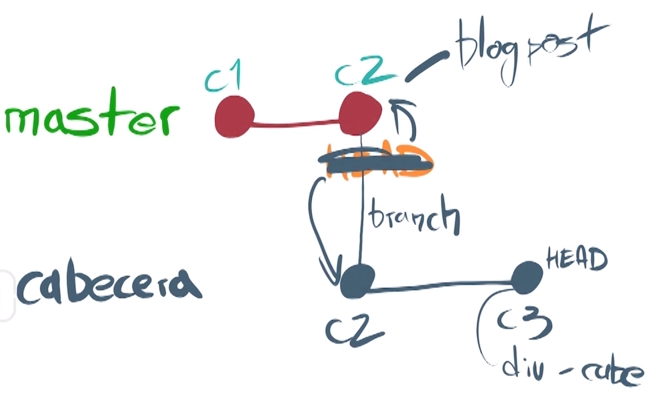 blogpost
C1
C2
master
HEAD
branch
cabecera
HEAD
C2
C3
div-cabe